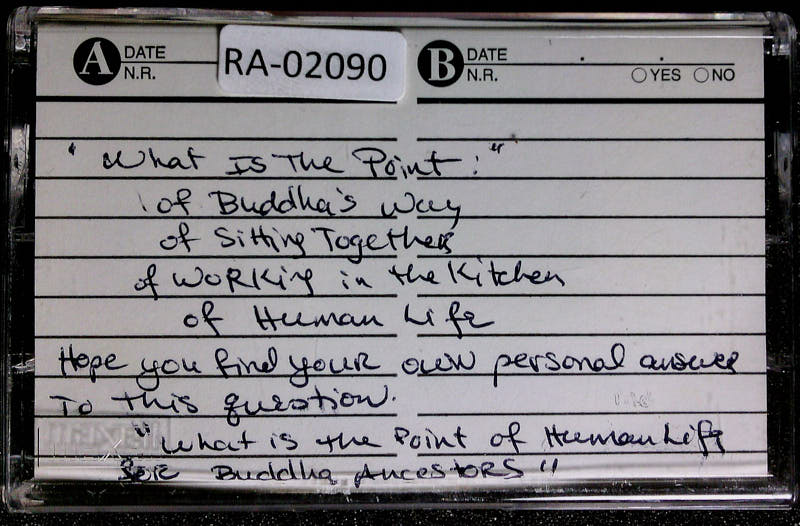 A DATE N.R.
RA-02090
B DATE N.R. YES NO
"What Is The Point:"
of Buddha's Way
of Sitting Together
of Working in the Kitchen
of Human Life
Hope you find your own personal answer
To this question.
"What is the Point of Human Life
Buddha Ancestors"